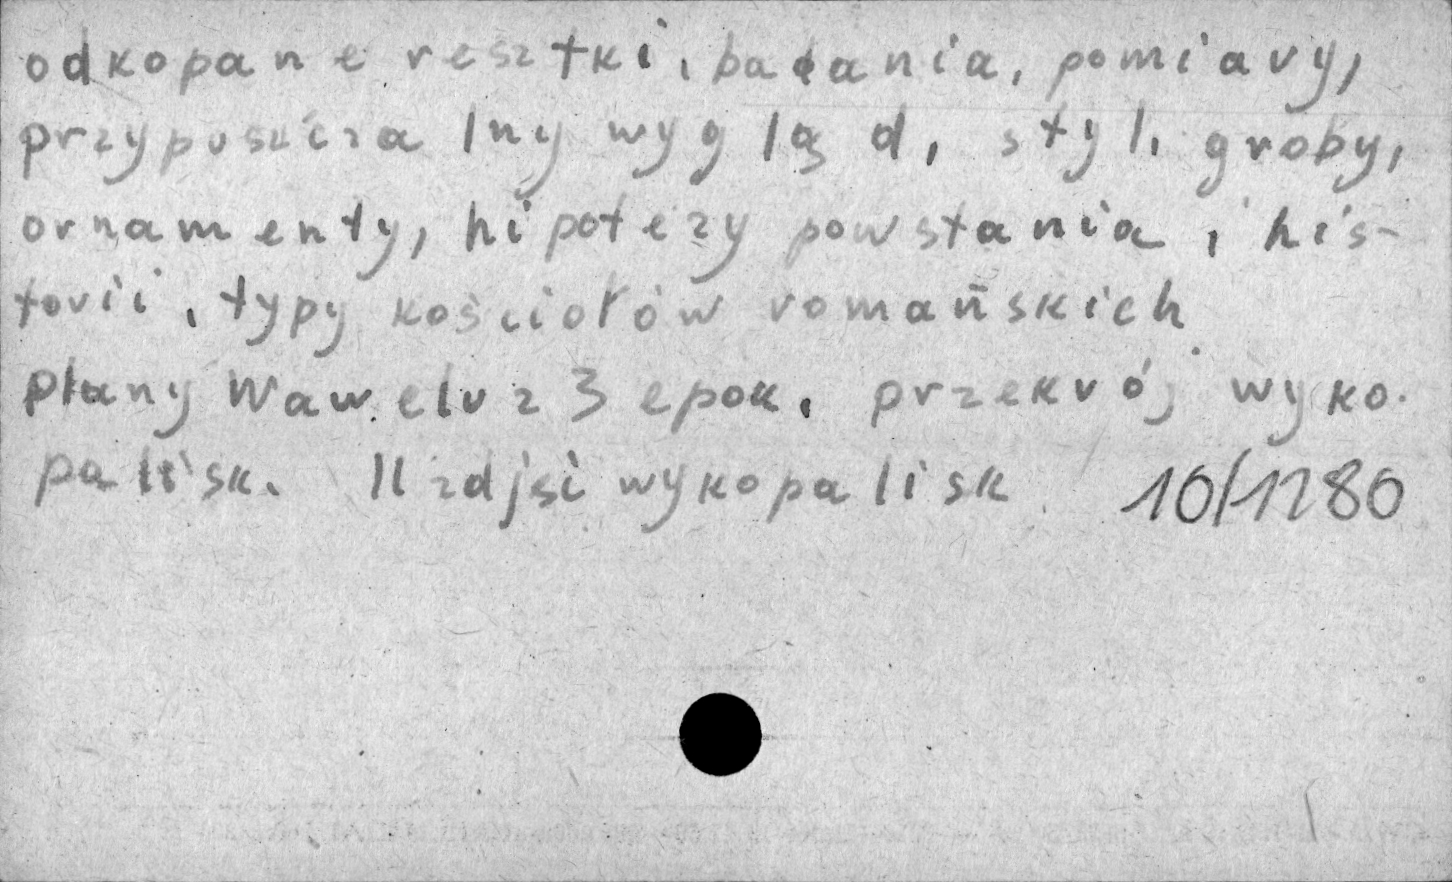 odkopane resztki, badania, pomiary,
przypuszczalny wygląd, styl, groby,
ornamenty, hipotezy powstania, his-
torii, typy kościołów romańskich
plany Wawelu z 3 epok, przekrój wyko-
palisk. 11 zdjęć wykopalisk 10/1280